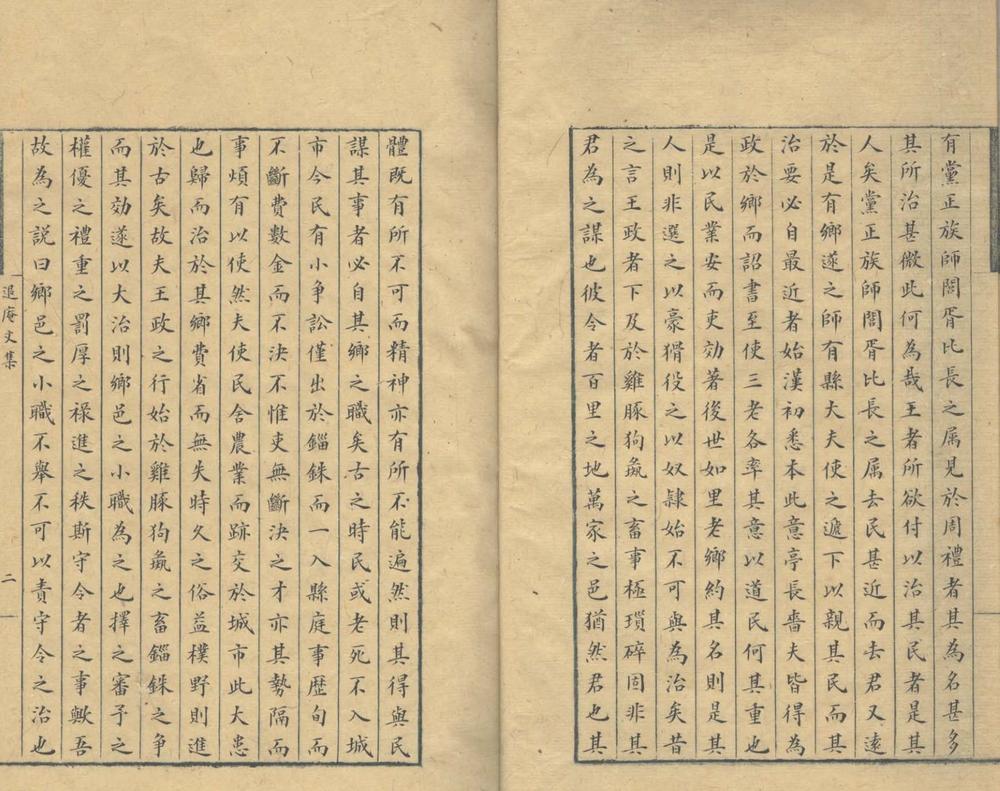 有黨正族師閭胥比長之属見於周禮者其為名甚多
其所治甚微此何為哉王者所欲付以治其民者是其
人矣黨正族師閭胥比長之属去民甚近而去君又遠
於是有鄉遂之師有縣大夫使之遞下以親其民而其
治要必自最近者始漢初悉本此意亭長嗇夫皆得為
政於鄉而詔書至使三老各率其意以道民何其重也
是以民業安而吏効著後世如里老鄉約其名則是其
人則非選之以豪猾役之以奴隸始不可與為治矣昔
之言王政者下及於雞豚狗彘之畜事極瑣碎固非其
君為之謀也彼令者百里之地萬家之邑猶然君也其
體既有所不可而精神亦有所不能遍然則其得與民
謀其事者必自其鄉之職矣古之時民或老死不入城
市今民有小争訟僅出於錙銖而一入縣庭事歴旬而
不斷費數金而不决不惟吏無斷决之才亦其勢隔而
事煩有以使然夫使民舍農業而跡交於城市此大患
也歸而治於其鄉費省而無失時久之俗益樸野則進
於古矣故夫王政之行始於雞豚狗彘之畜錙銖之争
而其効遂以大治則鄉邑之小職為之也擇之審予之
權優之禮重之罰厚之禄進之秩斯守令者之事歟吾
故為之説曰鄉邑之小職不舉不可以責守令之治也
退庵文集
二